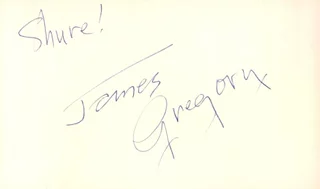 Shure!
James
Gregory